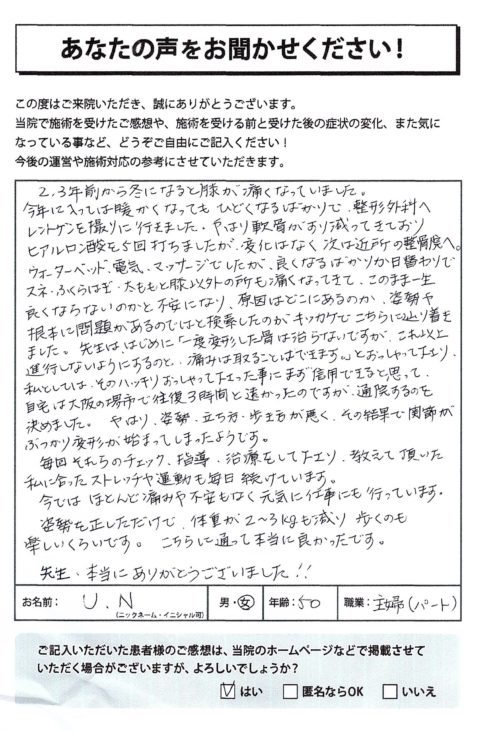 あなたの声をお聞かせください！
この度はご来院いただき、誠にありがとうございます。
当院で施術を受けたご感想や、施術を受ける前と受けた後の症状の変化、また気に
なっている事など、どうぞご自由にご記入ください！
今後の運営や施術対応の参考にさせていただきます。
2,3年前から冬になると膝が痛くなっていました。
今年に入っては暖かくなってもひどくなるばかりで、整形外科へ
レントゲンを撮りに行きました。やはり軟骨がすり減ってきており
ヒアルロン酸を5回打ちましたが、変化はなく次は近所の整骨院へ。
ウォーターベッド、電気、マッサージでしたが、良くなるばかりか日替わりで
スネ・ふくらはぎ・太ももと膝以外の所も痛くなってきて、このまま一生
良くならないのかと不安になり、原因はどこにあるのか、姿勢や
根本に問題があるのではと検索したのがキッカケでこちらに辿り着き
ました。先生は、はじめに「一度変形した骨は治らないですが、これ以上
進行しないようにするのと、痛みは取ることはできます。」とおっしゃって下さり、
私としては、そのハッキリおっしゃって下さった事にまず信用できると思って、
自宅は大阪の堺市で往復3時間と遠かったのですが、通院するのを
決めました。やはり、姿勢、立ち方・歩き方が悪く、その結果で関節が
ぶつかり変形が始まってしまったようです。
毎回それらのチェック、指導、治療をして下さり、教えて頂いた
私に合ったストレッチや運動も毎日続けています。
今では ほとんど痛みや不安もなく元気に仕事にも行っています。
姿勢を正しただけで、体重が2～3kgも減り 歩くのも
楽しいくらいです。こちらに通って本当に良かったです。
先生、本当にありがとうございました!!
お名前： U.N (ニックネーム・イニシャル可) 男・女 年齢：50 職業：主婦(パート)
ご記入いただいた患者様のご感想は、当院のホームページなどで掲載させて
いただく場合がございますが、よろしいでしょうか？
はい 匿名ならOK いいえ